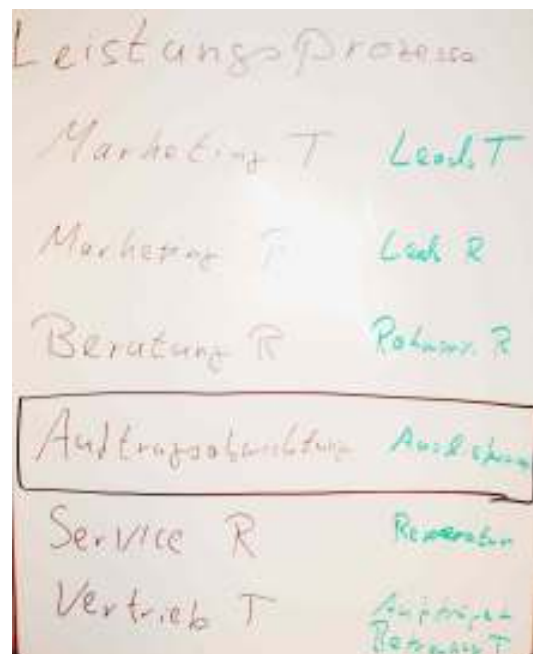 Leistungsprozesse
Marketing T Leads T
Marketing R Leads R
Beratung R Rahmenv. R
Auftragsabwicklung Auslieferung
Service R Reparatur
Vertrieb T Aufträge
T